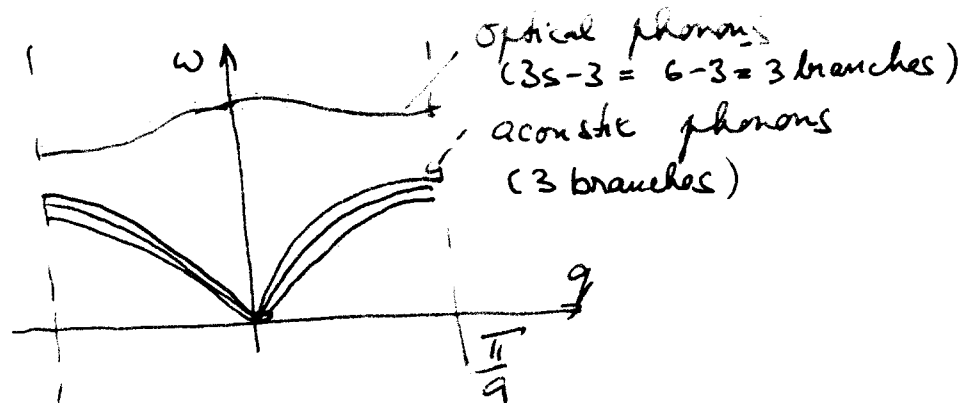 ω
optical phonons
(3s-3 = 6-3 = 3 branches)
acoustic phonons
(3 branches)
q
π
a